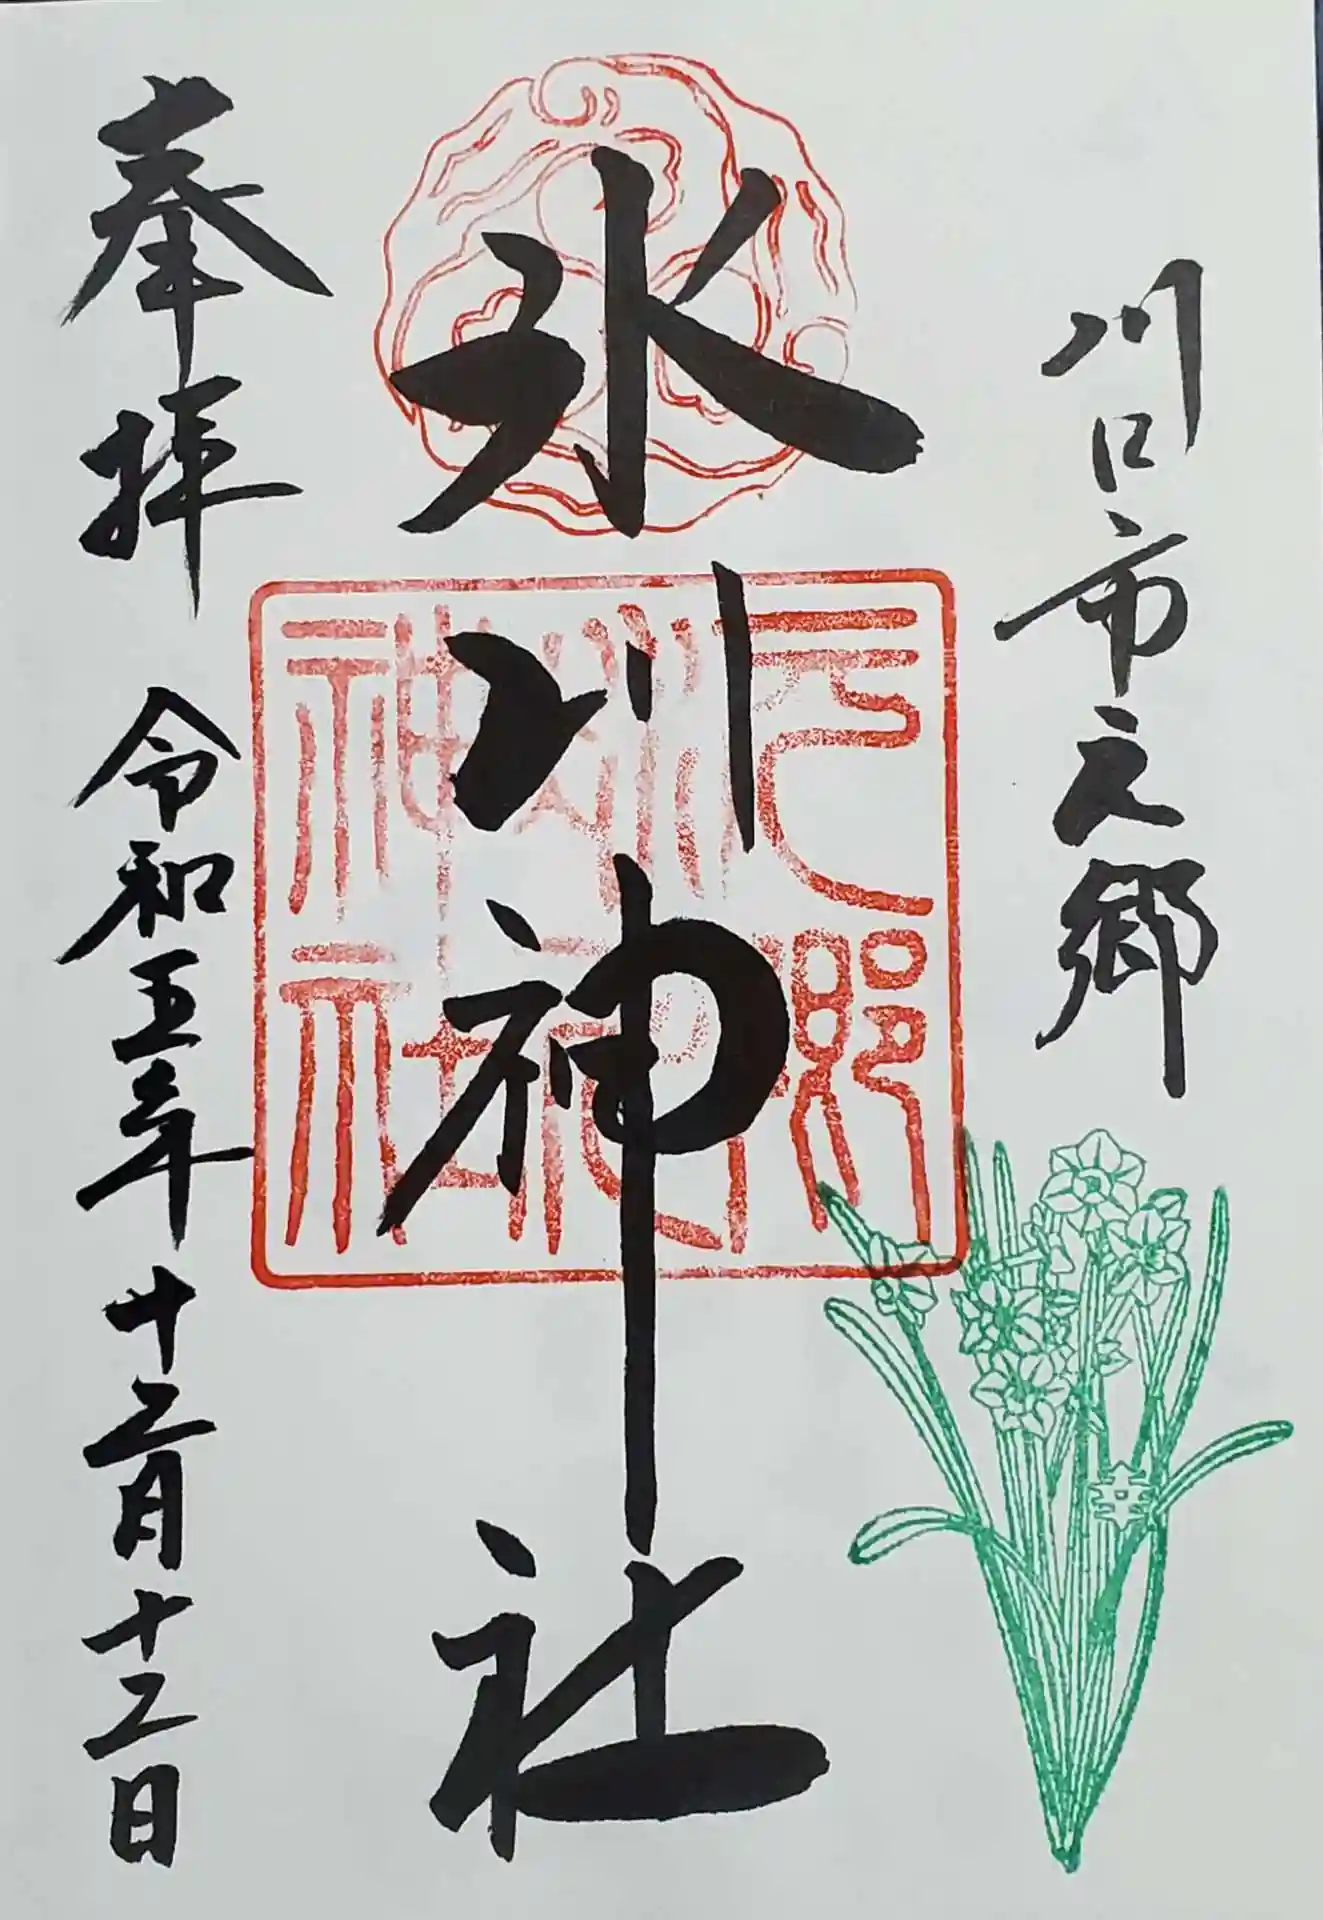 川口市元郷
氷川神社
奉拝 令和五年十二月十二日
元郷
神社